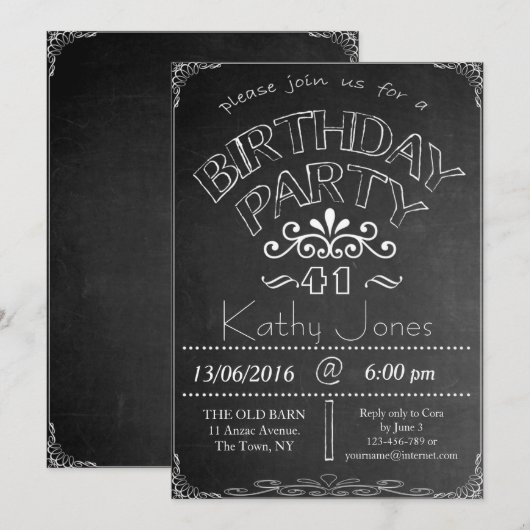 please join us for a
BIRTHDAY
PARTY
41
Kathy Jones
13/06/2016 @ 6:00 pm
THE OLD BARN
11 Anzac Avenue.
The Town, NY
Reply only to Cora
by June 3
123-456-789 or
yourname@internet.com